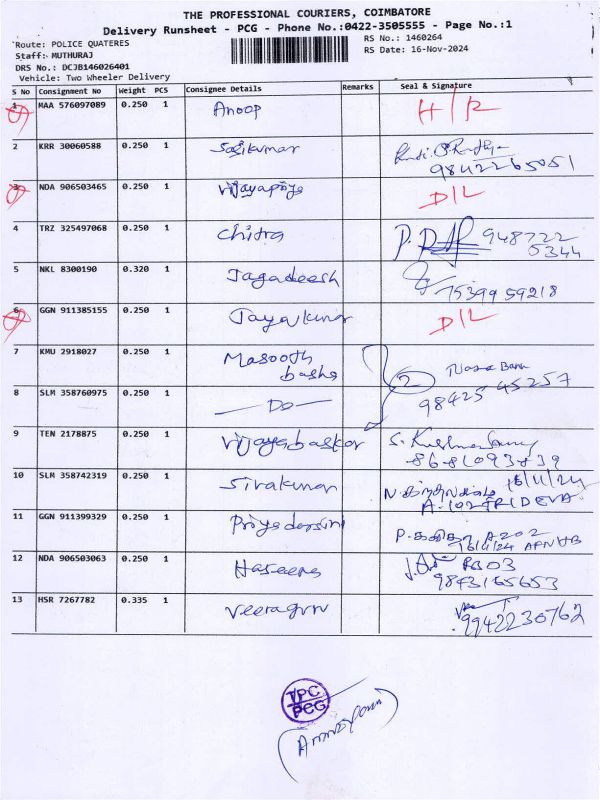 THE PROFESSIONAL COURIERS, COIMBATORE
Delivery Runsheet - PCG - Phone No.:0422-3505555 - Page No.:1
Route: POLICE QUATERES
RS No.: 1460264
Staff: MUTHURAJ
RS Date: 16-Nov-2024
DRS No.: DCJB146026401
Vehicle: Two Wheeler Delivery
S No Consignment No Weight PCS Consignee Details Remarks Seal & Signature
1 MAA 576097089 0.250 1 Anoop H/R
2 KRR 30060588 0.250 1 Sasikumar
9842265051
3 NDA 906503465 0.250 1 Vijayapriya D/L
4 TRZ 325497068 0.250 1 Chitra 948722
5344
5 NKL 8300190 0.320 1 Jagadeesh
7539959218
6 GGN 911385155 0.250 1 Jayakumar D/L
7 KMU 2918027 0.250 1 Masooth
basha 2 Bank
8 SLM 358760975 0.250 1 — Do — 98425 45257
9 TEN 2178875 0.250 1 Vijayabaskar S.
8681093839
10 SLM 358742319 0.250 1 Sivakumar 16/11/24
A.102 SRIDEVA
11 GGN 911399329 0.250 1 Priyadarsini P. கவிதா A202
16/11/24
12 NDA 906503063 0.250 1 Haseena
9843165653
13 HSR 7267782 0.335 1 Veeraguru
9942230762
TPC
PCG